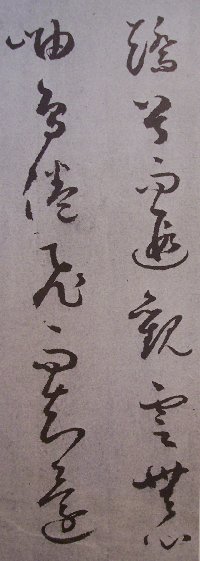 矯首而遐觀雲無心
岫鳥倦飛而知還